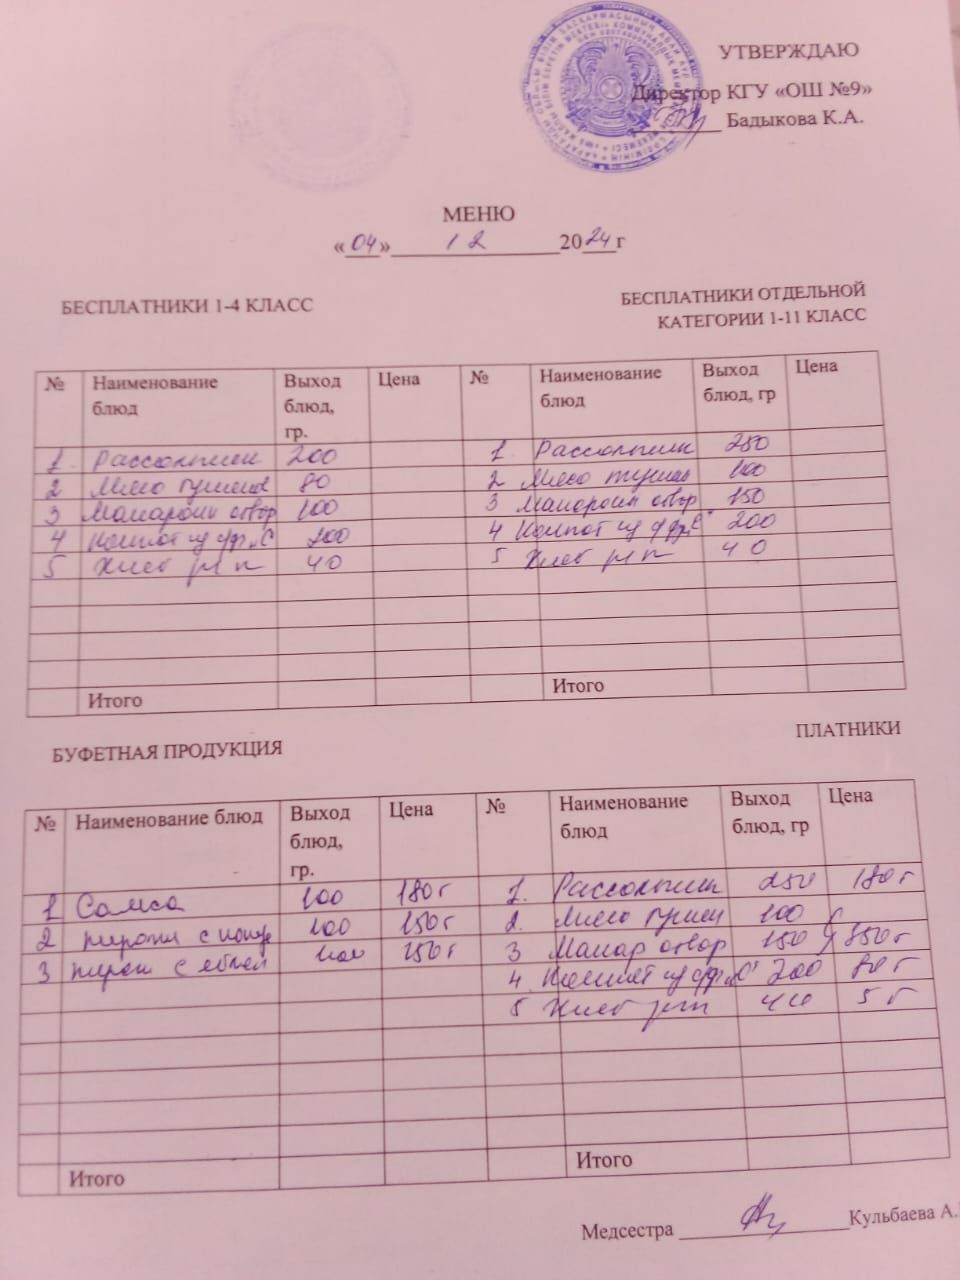 УТВЕРЖДАЮ
Директор КГУ «ОШ №9»
Бадыкова К.А.
МЕНЮ
«04» 12 2024г
БЕСПЛАТНИКИ 1-4 КЛАСС
БЕСПЛАТНИКИ ОТДЕЛЬНОЙ
КАТЕГОРИИ 1-11 КЛАСС
№ Наименование блюд Выход блюд, гр. Цена № Наименование блюд Выход блюд, гр Цена
1. Рассольник 200 1. Рассольник 250
2 Мясо тушеное 80 2 Мясо тушен 100
3 Макароны отвар 100 3 Макароны отвар 150
4 Компот из с/фр "С" 200 4 Компот из с/фр "С" 200
5 Хлеб рж п 40 5 Хлеб рж п 40
Итого Итого
БУФЕТНАЯ ПРОДУКЦИЯ
ПЛАТНИКИ
№ Наименование блюд Выход блюд, гр. Цена № Наименование блюд Выход блюд, гр Цена
1 Самса 100 180т 1. Рассольник 250 180т
2 пирожки с 100 150т 2. Мясо тушен 100
3 пирож с яблок 100 150т 3 Макар отвар 150 350т
4. Компот из с/фр "С" 200 80т
5 Хлеб рж п 40 5т
Итого Итого
Медсестра Кульбаева А.